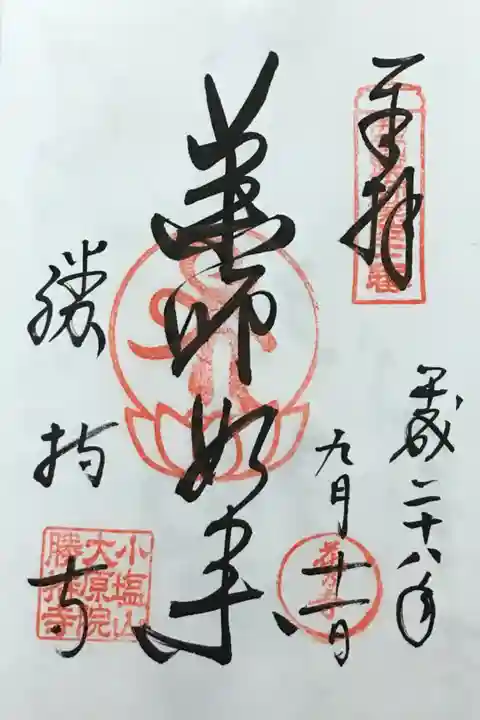 奉拝
平成二十八年
九月十一日
薬師如来
勝持寺
小塩山
大原院
勝持寺